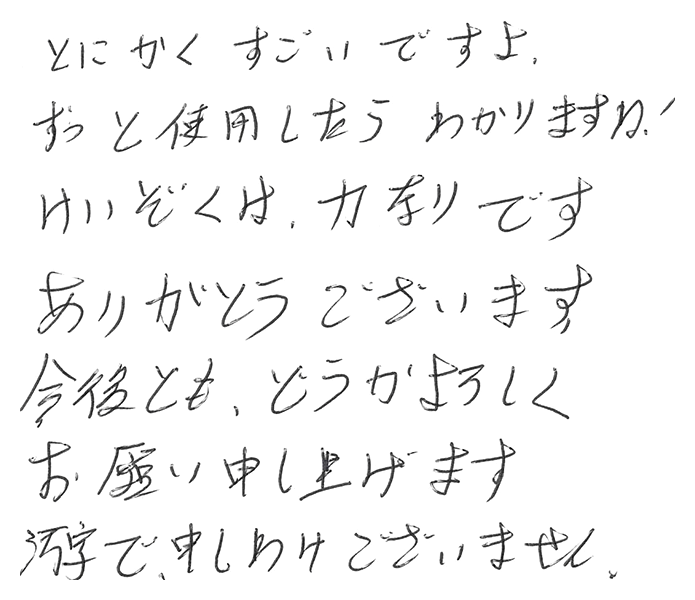 とにかくすごいですよ、
ずっと使用したらわかりますね!
けいぞくは、力なりです
ありがとうございます
今後とも、どうかよろしく
お願い申し上げます
汚字で、申しわけございません。